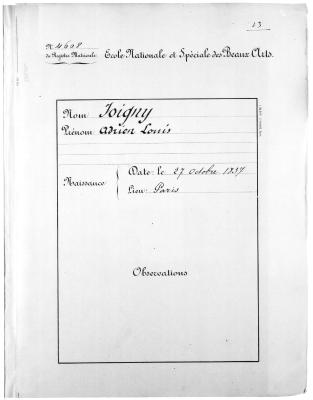 13
N. 4608
du Registre Matricule.
Ecole Nationale et Spéciale des Beaux Arts.
Nom Joigny
Prénom Adrien Louis
Naissance
Date: le 27 Octobre 1837
Lieu: Paris
Observations